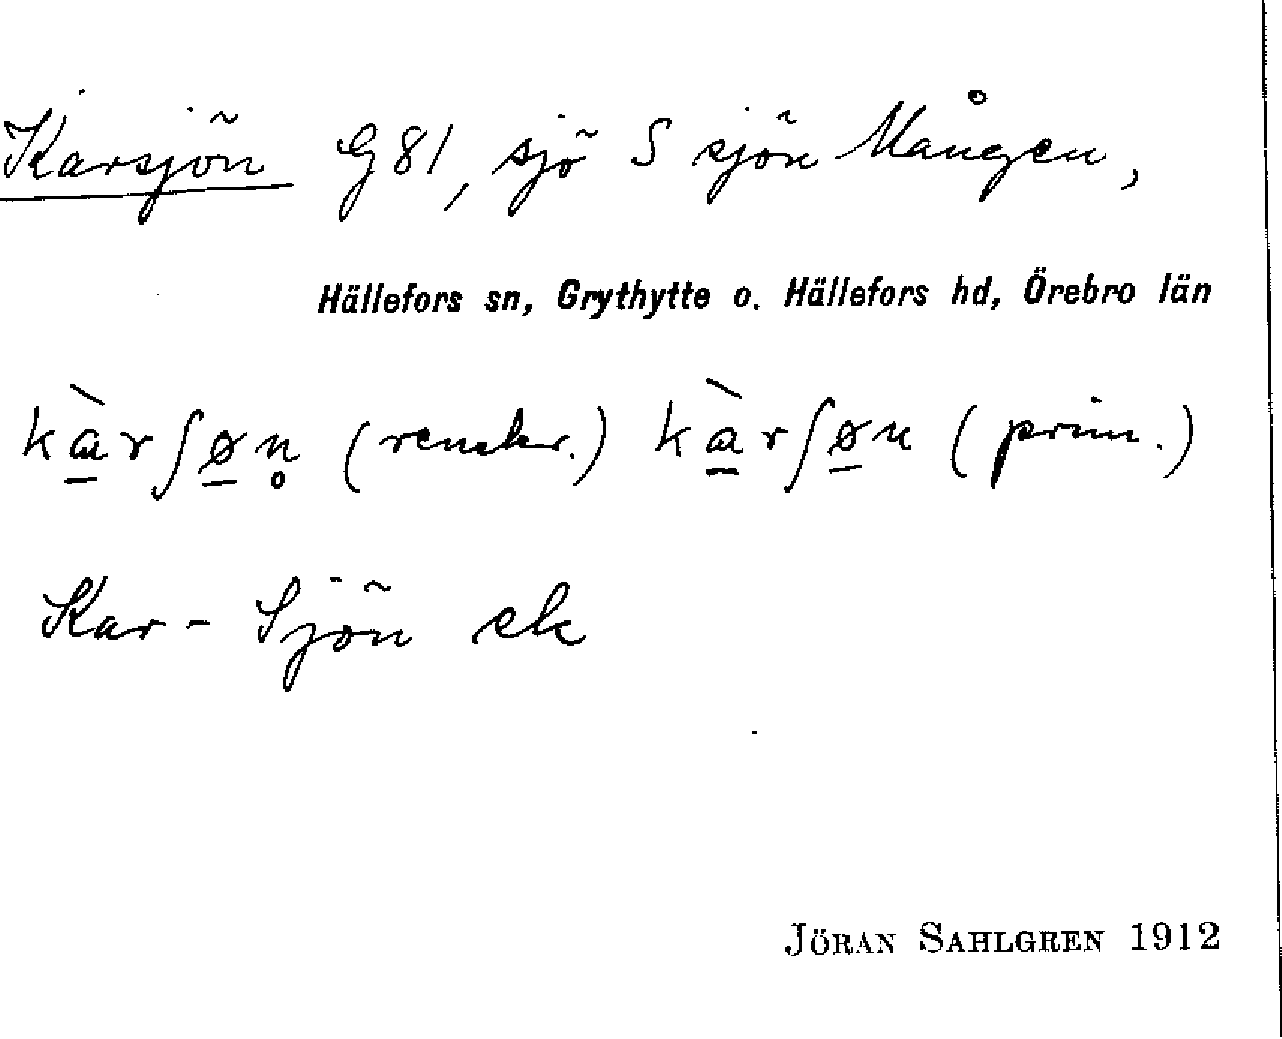 Karsjön G81, sjö S sjön Mången,
Hällefors sn, Grythytte o. Hällefors hd, Örebro län
kà̱rʃø̱n̥ (renskr.) kà̱rʃø̱n (prim.)
Kar-Sjön ek
JÖRAN SAHLGREN 1912